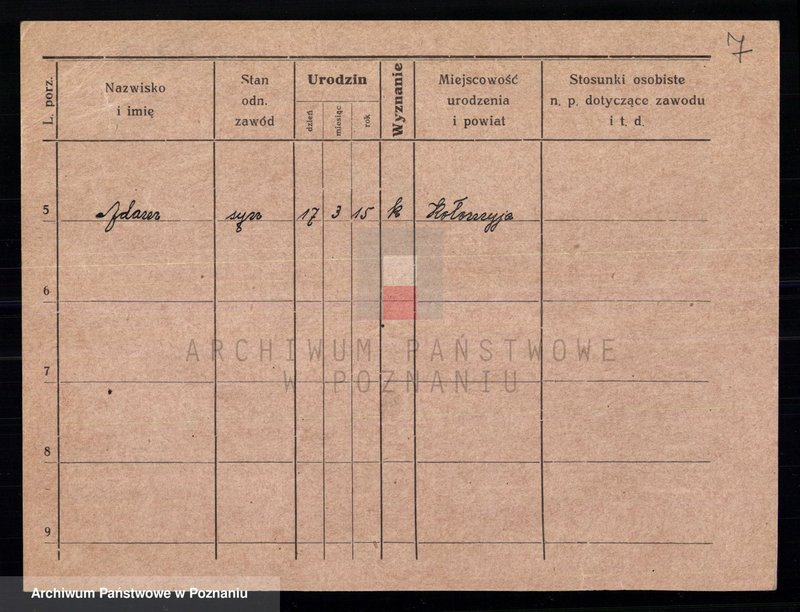 7
L. porz.
Nazwisko
i imię
Stan
odn.
zawód
Urodzin
dzień
miesiąc
rok
Wyznanie
Miejscowość
urodzenia
i powiat
Stosunki osobiste
n. p. dotyczące zawodu
i t. d.
5 Adam syn 17 3 15 k
6
7
8
9
ARCHIWUM PAŃSTWOWE
W POZNANIU
Archiwum Państwowe w Poznaniu